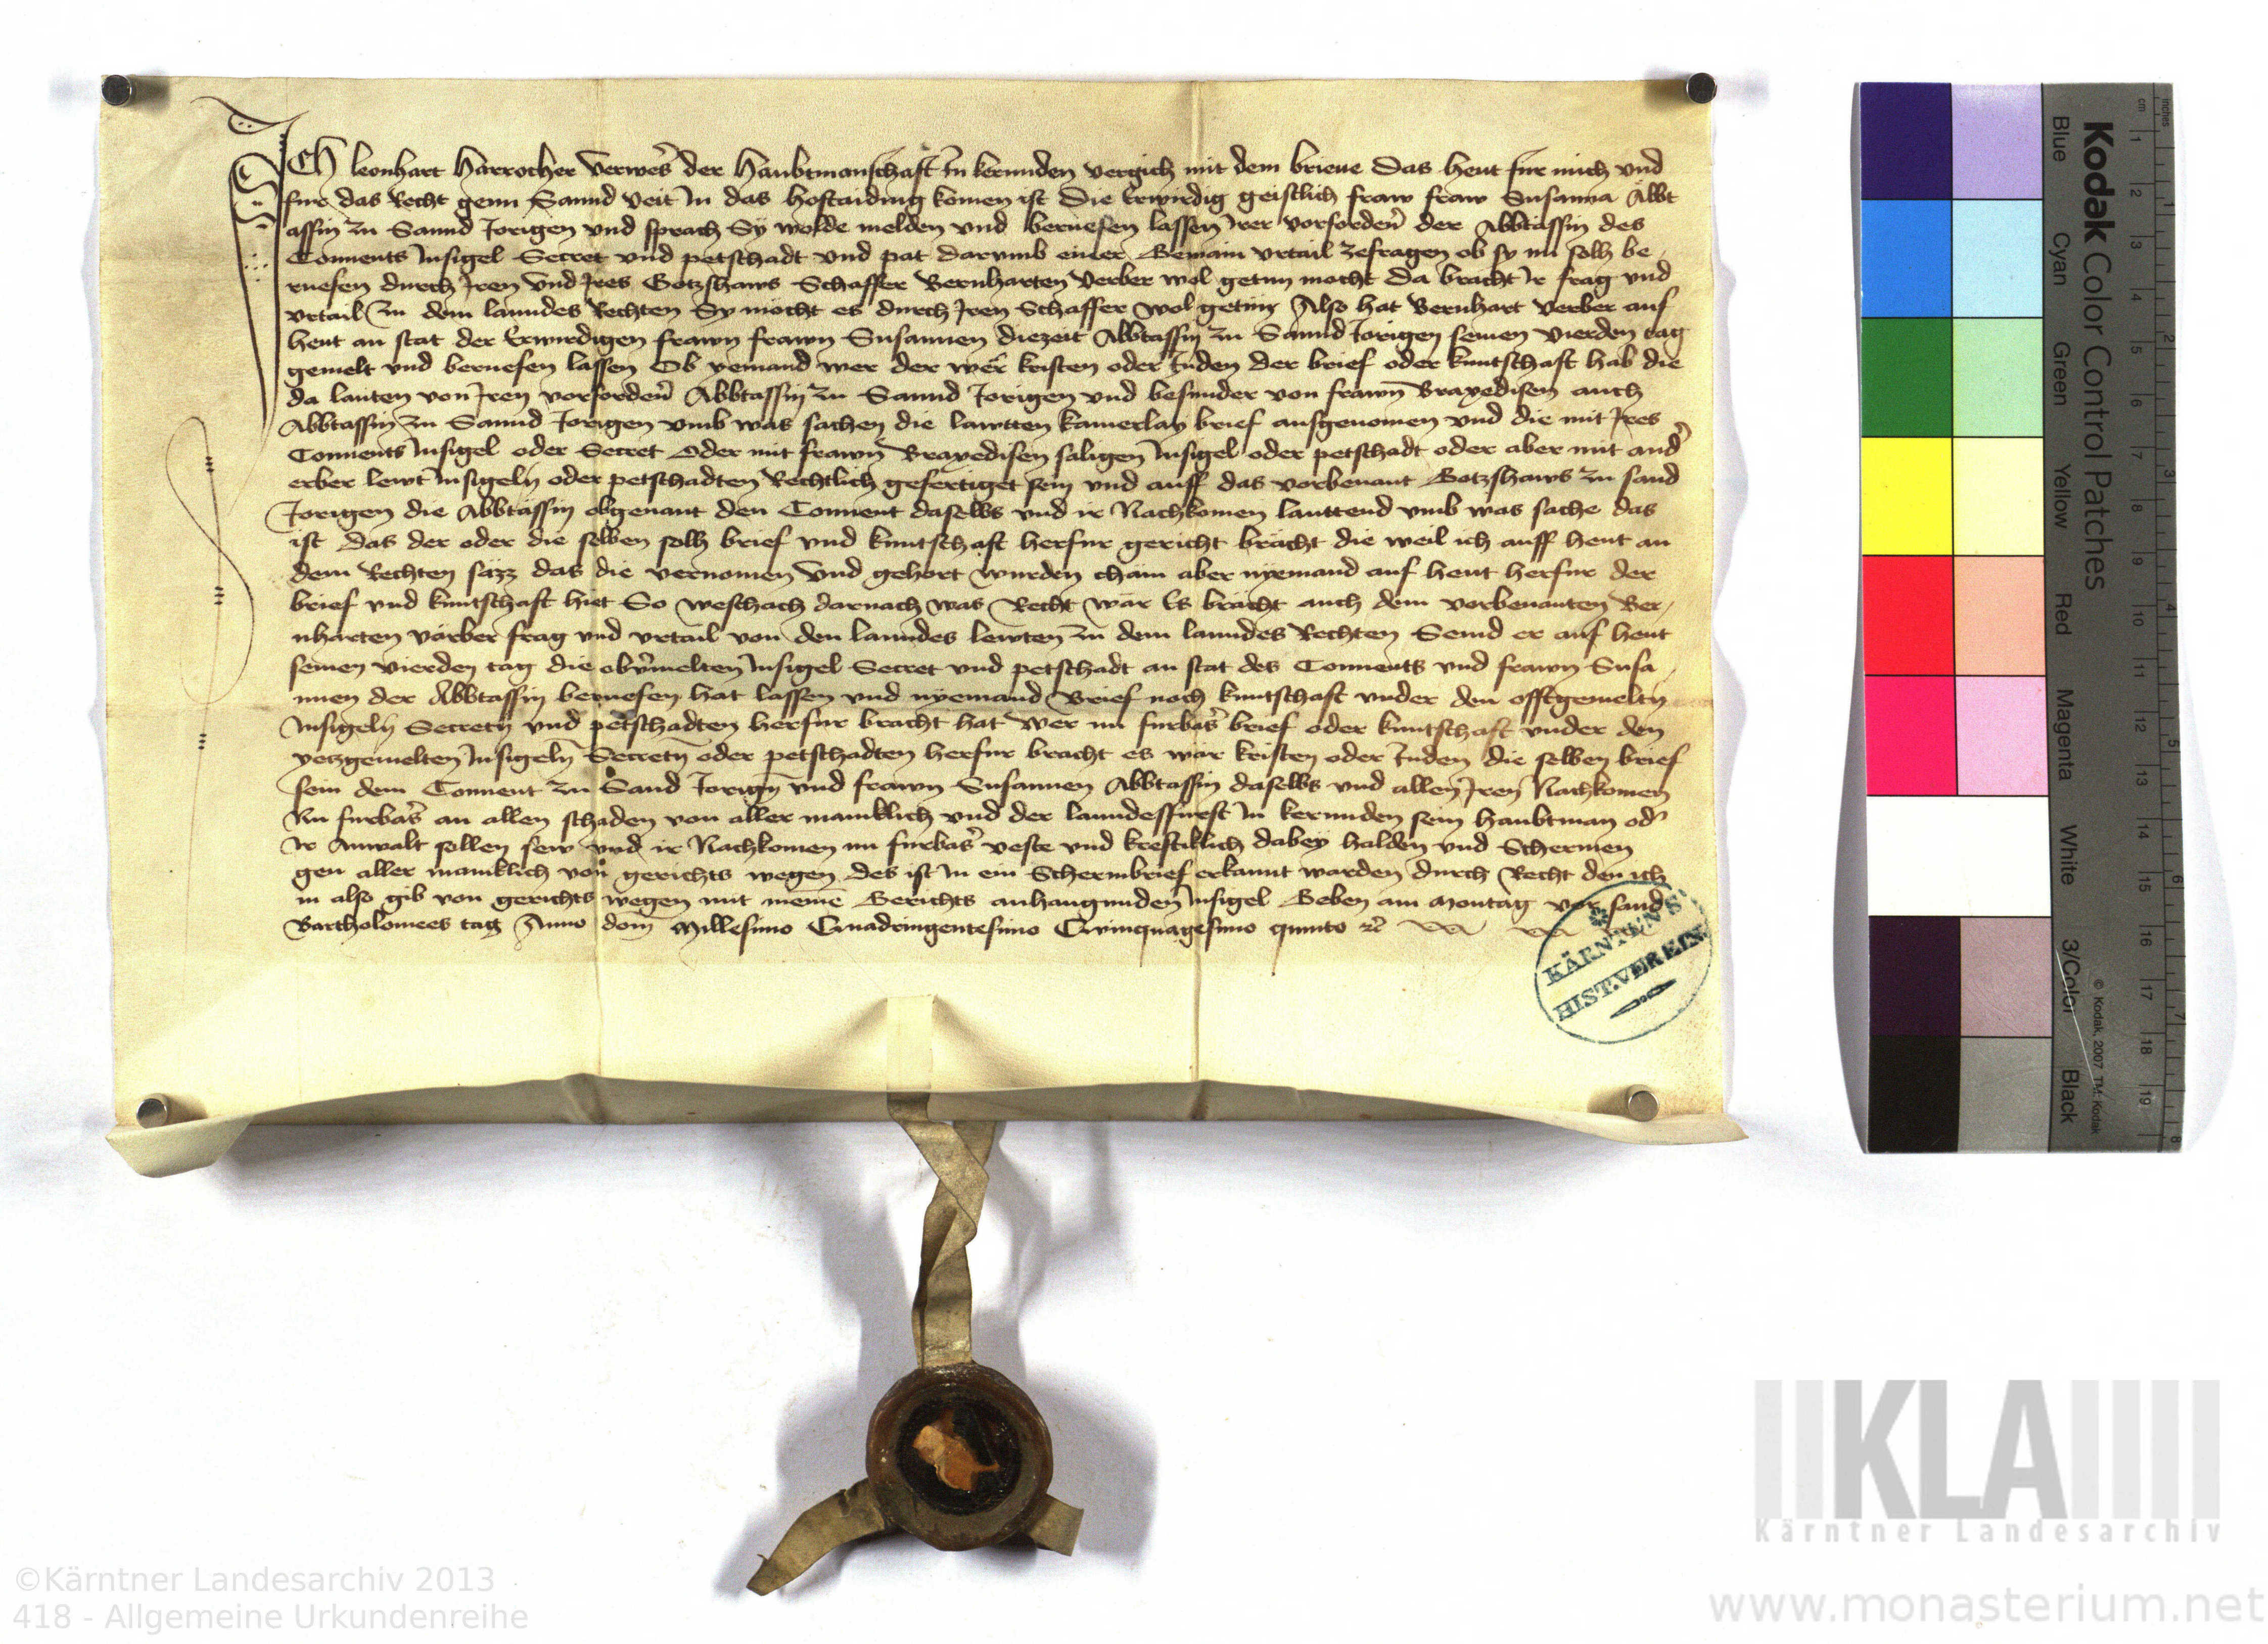 Ich leonhart Harrocher Verweser der Haubtmanschaft In kernnden vergich mit dem brieue Das heut fur mich vnd
fur das Recht genn Sannd Veit In das hoftaiding komen ist Die Erwirdig geistlich fraw fraw Susanna Abbt
assin zu Sannd Jorigen vnd sprach Sy wolde melden vnd beruefen lassen Irer vorfordern̄ der Abbtassin des
Conuents Insigel Secret vnd petschadt vnd pat darvmb einer Gemain vrtail zefragen ob sy nu solh be
ruefen durch Iren vnd Ires Gotzshaws Schaffer Bernharten Verber wol getun mocht Da bracht Ir frag vnd
vrtail In dem lanndes Rechten Sy mocht es durch Iren Schaffer wol getun Also hat Bernhart Verber auf
heut an stat der Erwirdigen frawn frawn Susannen diezeit Abbtassin zu Sannd Jorigen seinen vierden tag
gemelt vnd beruefen lassen Ob yemand wer der wer kristen oder Juden der brief oder kuntschaft hab die
da lauten von Iren vorfordern̄ Abbtassin zu Sannd Jorigen vnd besunder von frawn̄ Braxedisen auch
Abbtassin zu Sannd Jorigen vmb was sachen die lawtten kainerlay brief ausgenomen vnd die mit Ires
Conuents Insigel oder Secret Oder mit frawn̄ Braxedisen saligen Insigel oder petschadt oder aber mit and
erber lewt Insigeln oder petschadten Rechtlich gefertiget sein vnd auff das vorbenant Gotzshaws zu sand
Jorigen die Abbtassin obgenant den Conuent daselbs vnd ir Nachkomen lauttend vmb was sache das
ist Das der oder die selben solh brief vnd kuntschaft herfur gericht bracht die weil ich auff heut an
dem Rechten sazz das die vernomen vnd gehort wurden cham aber nyemand auf heut herfur der
brief vnd kuntschaft hiet So weschach darnach was Recht wär Es bracht auch dem vorbenanten Ber-
nharten värber frag vnd vrtail von den lanndes lewten In dem lanndes Rechten Seind er auf heut
seinen vierden tag die obgemelten Insigel Secret vnd petschadt an stat des Conuents vnd frawn Susa-
nnen der Abbtassin beruefen hat lassen vnd nyemand Brief noch kuntschaft vnder den offtgemeltn
Insigeln Secretn vnd petschadten herfur bracht hat Wer nu furbas brief oder kuntschaft vnder den
yetzgemelten Insigeln Secretn oder petschadten herfur bracht es wär kristen oder Juden die selben brief
sein dem Conuent zu Sand Jorign̄ vnd frawn Susannen Abbtassin daselbs vnd allen Iren Nachkomen
Nu furbas an allen schaden von aller maniklich vnd der lanndesfurst In kernnden sein haubtman od
Ir Anwalt sollen sew vnd ir Nachkomen nu furbas veste vnd kreftiklich dabey halden vnd Schermen
gen aller maniklich von gerichts wegen des ist In ein Schermbrief erkannt warden durch Recht den ich
in also gib von gerichts wegen mit meinē Gerichts anhangunden Insigel Geben am Montag vor sand
Bartholomees tag Anno dom̄ Millesimo Quadringentesimo Qwinquagesimo quinto
KÄRNTEN'S
HIST.VEREIN
Kodak Color Control Patches
Blue Cyan Green Yellow Red Magenta White 3/Color Black
© Kodak, 2007 TM: Kodak
cm 1 2 3 4 5 6 7 8 9 10 11 12 13 14 15 16 17 18 19
inches 1 2 3 4 5 6 7 8
KLA
Kärntner Landesarchiv
©Kärntner Landesarchiv 2013
418 - Allgemeine Urkundenreihe
www.monasterium.net